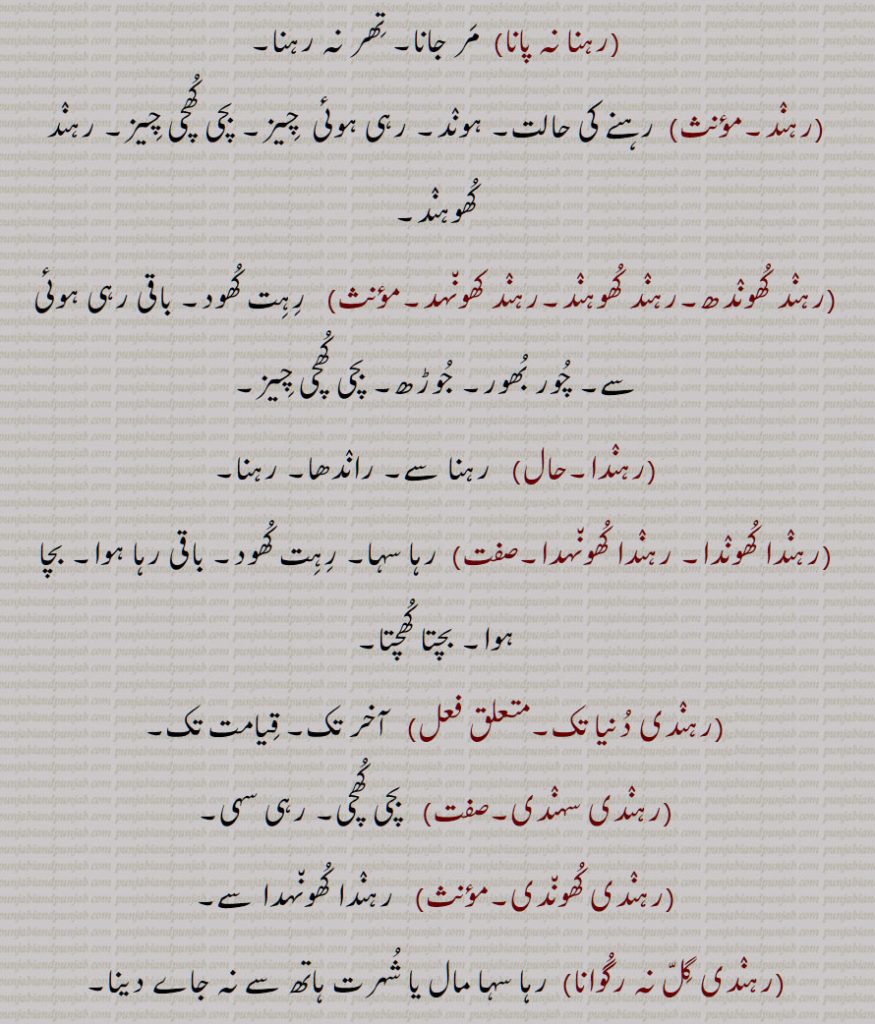 (رہنا نہ پانا) مَر جانا۔ تِھر نہ رہنا۔
(رہن٘د۔مؤنث) رہنے کی حالت۔ ہون٘د۔ رہی ہوئی چِیز۔ بچی کُھچی چِیز۔ رہن٘د
کُھوہن٘د۔
(رہن٘د کُھون٘دھ۔رہن٘د کُھوہن٘د۔رہن٘د کھون٘ہد۔مؤنث) رِہِت کُھود۔ باقی رہی ہوئی
سے۔ چُور بُھور۔ جُوڑھ۔ بچی کُھچی چِیز۔
(رہن٘دا۔حال) رہنا سے۔ ران٘دھا۔ رہنا۔
(رہن٘دا کُھون٘دا۔ رہن٘دا کُھون٘ہدا۔صفت) رہا سہا۔ رِہِت کُھود۔ باقی رہا ہوا۔ بچا
ہوا۔ بچتا کُھچتا۔
(رہن٘دی دُنیا تک۔متعلق فعل) آخر تک۔ قِیامت تک۔
(رہن٘دی سہن٘دی۔صفت) بچی کُھچی۔ رہی سہی۔
(رہن٘دی کُھون٘دی۔مؤنث) رہن٘دا کُھون٘ہدا سے۔
(رہن٘دی گِلّ نہ رگُوانا) رہا سہا مال یا شُہرت ہاتھ سے نہ جاے دینا۔